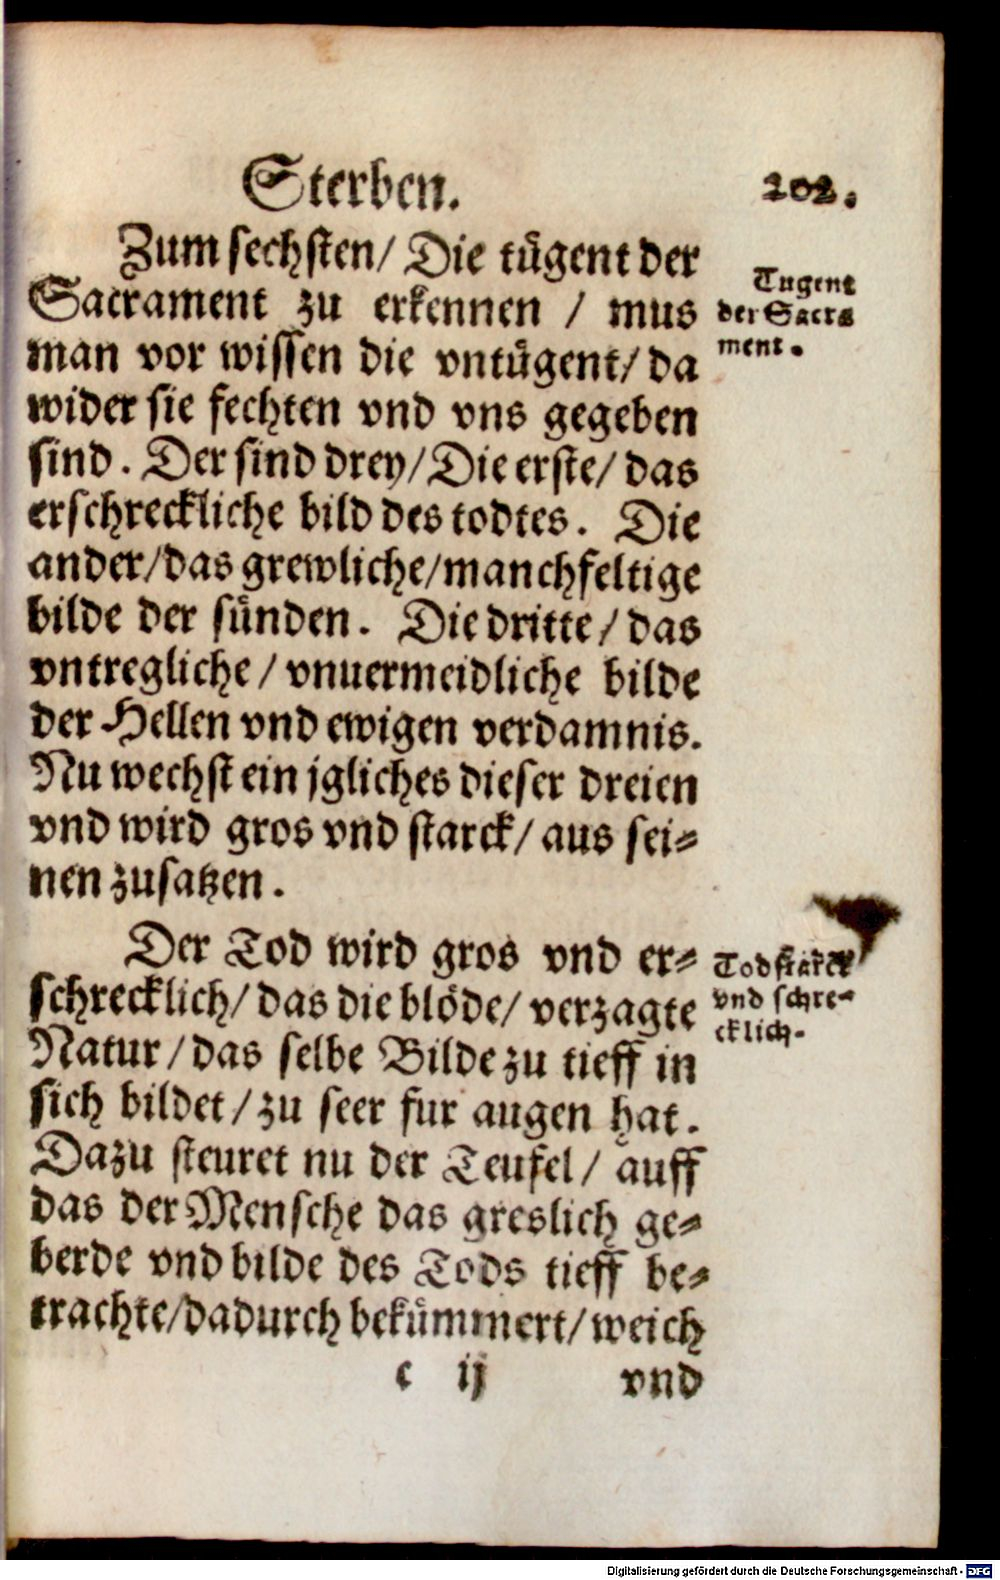 Sterben.
202.
Zum sechsten/ Die tügent der
Sacrament zu erkennen / mus
man vor wissen die vntügent/ da
wider sie fechten vnd vns gegeben
sind. Der sind drey/ Die erste/ das
erschreckliche bild des todtes. Die
ander/das grewliche/manchfeltige
bilde der sünden. Die dritte/ das
vntregliche/ vnuermeidliche bilde
der Hellen vnd ewigen verdamnis.
Nu wechst ein jgliches dieser dreien
vnd wird gros vnd starck/ aus sei⸗
nen zusatzen.
Tugent
der Sacra
ment.
Der Tod wird gros vnd er⸗
schrecklich/ das die blöde/ verzagte
Natur/das selbe Bilde zu tieff in
sich bildet/ zu seer fur augen hat.
Dazu steuret nu der Teufel/ auff
das der Mensche das greslich ge⸗
berde vnd bilde des Tods tieff be⸗
trachte/dadurch bekümmert/weich
Tod starck
vnd schre⸗
cklich.
c ij
vnd
Digitalisierung gefördert durch die Deutsche Forschungsgemeinschaft - DFG